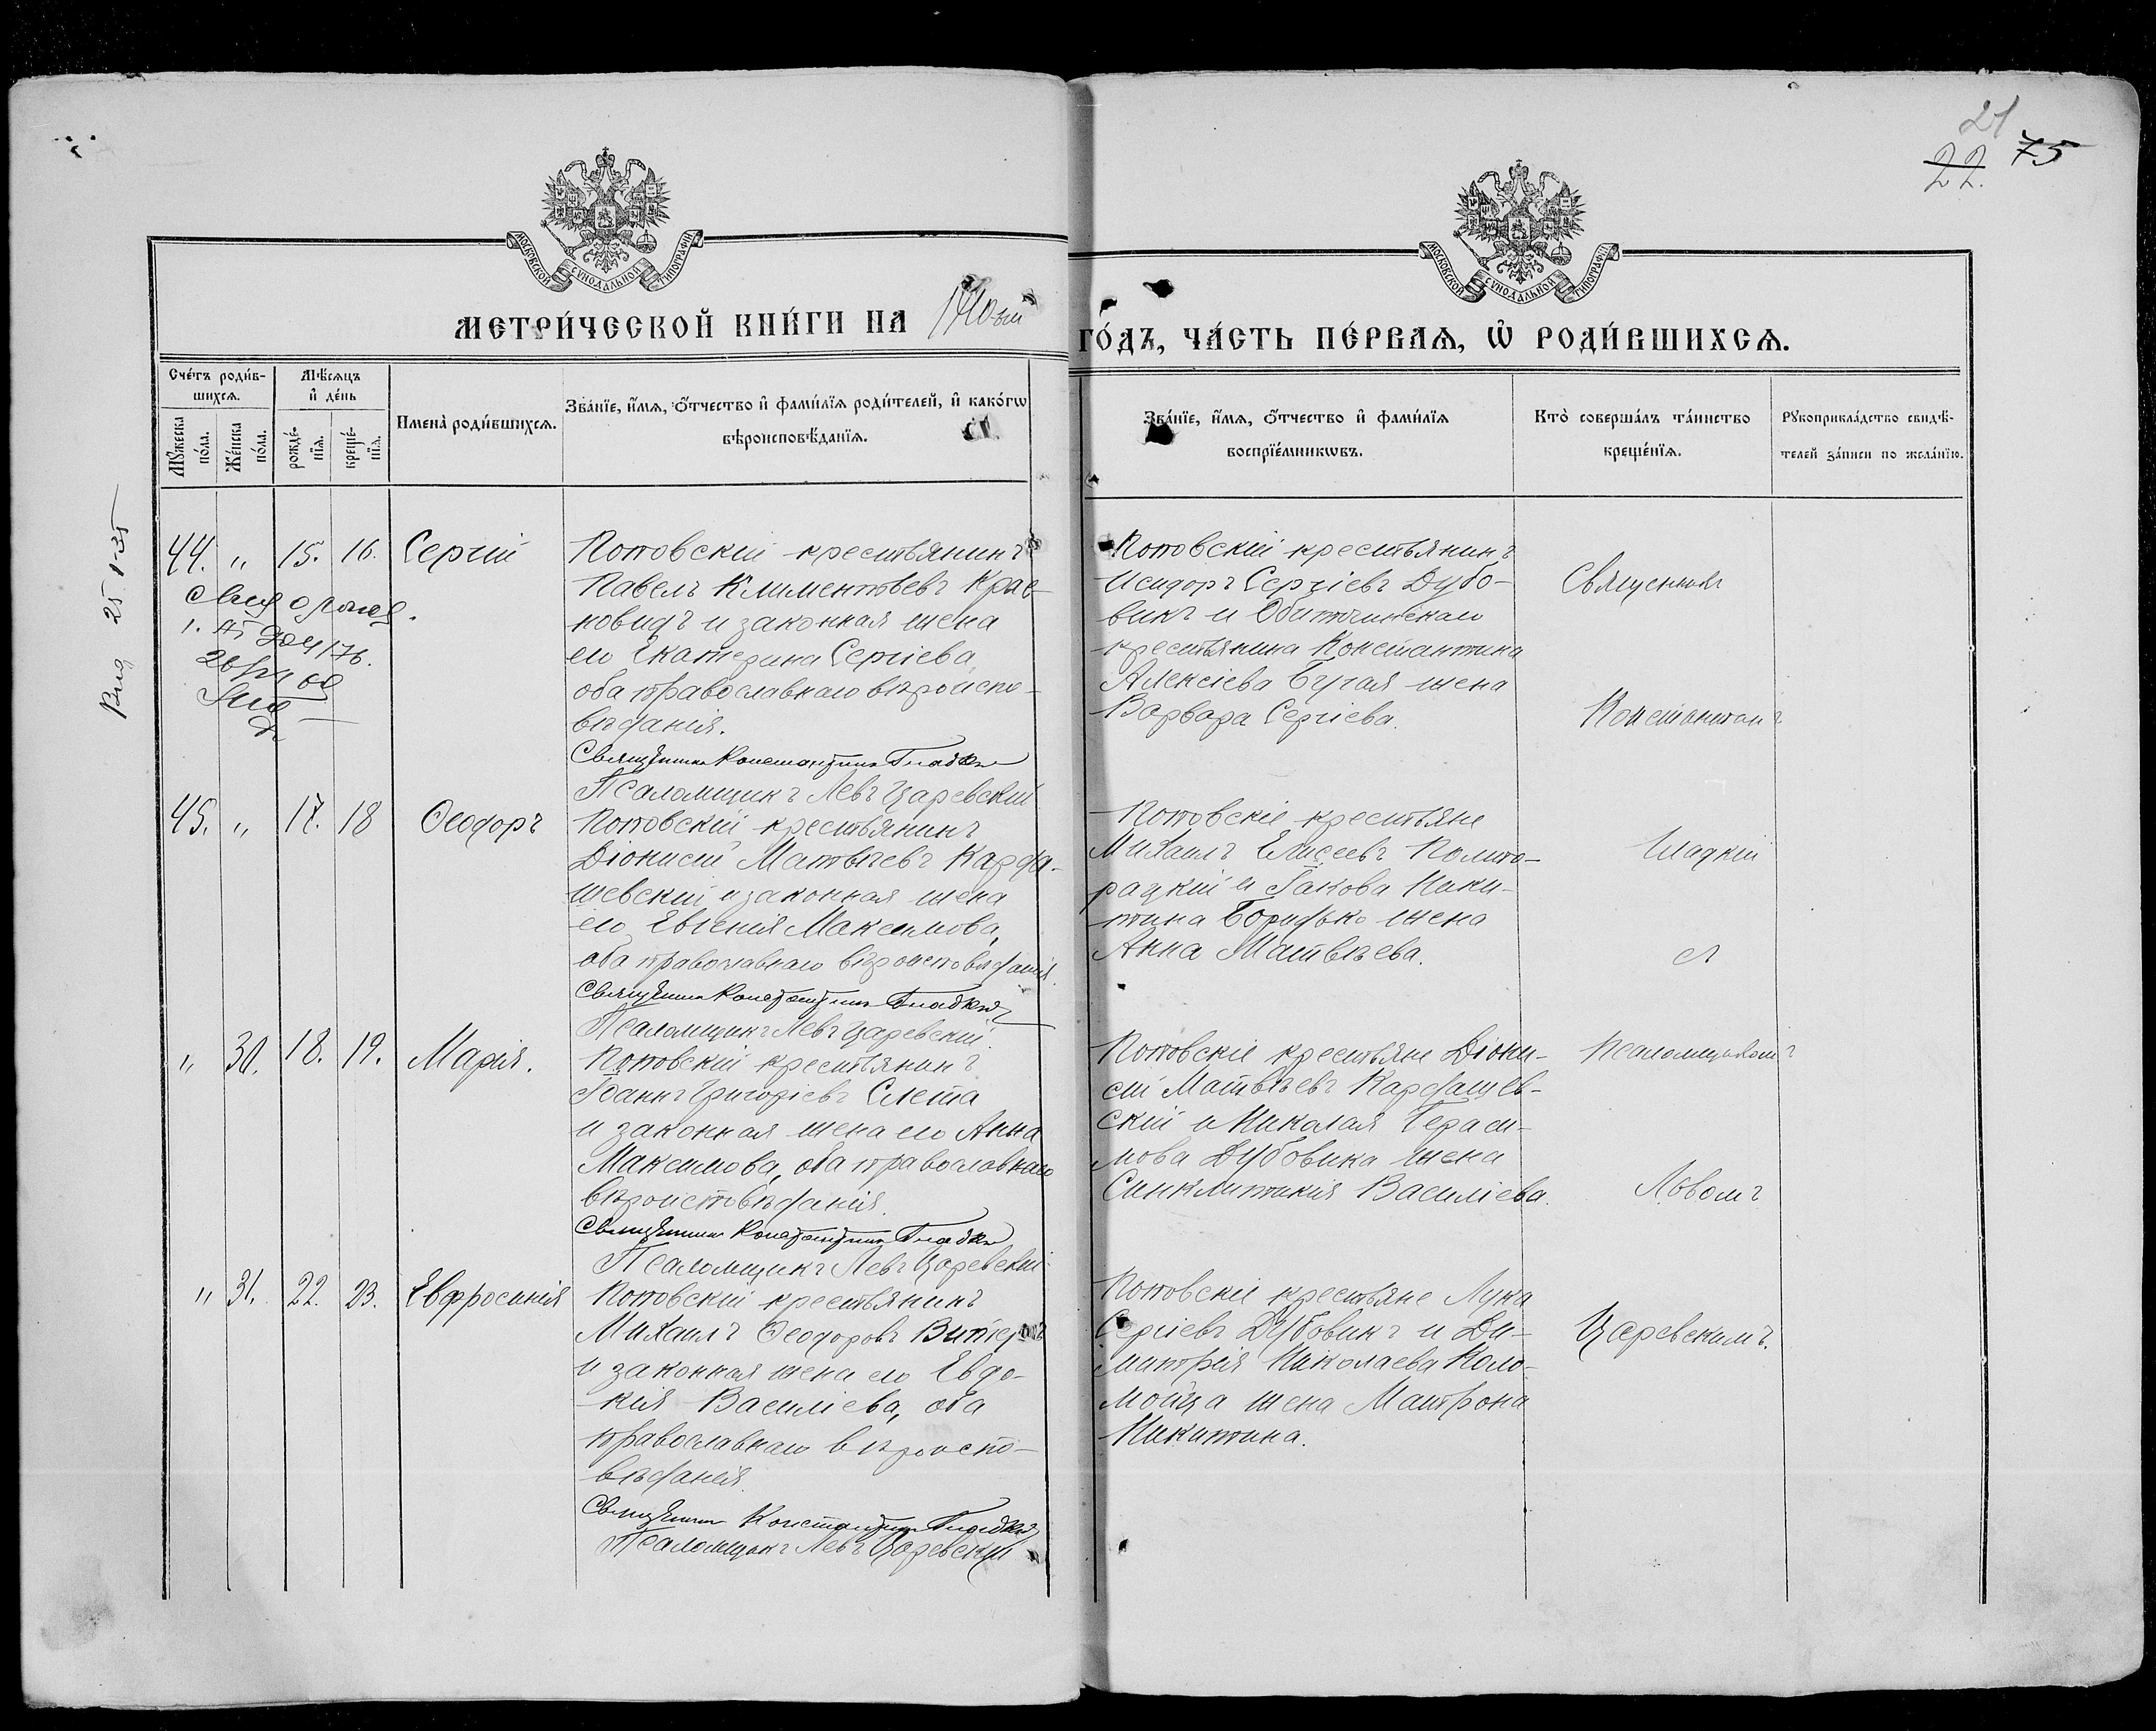 21
22. 75
МОСКОВСКОЙ СѴНОДАЛЬНОЙ ТИПОГРАФІИ
МОСКОВСКОЙ СѴНОДАЛЬНОЙ ТИПОГРАФІИ
МЕТРИ́ЧЕСКОЙ КНИ́ГИ НА
ГО́ДЪ, ЧА́СТЬ ПЕ́РВАѦ, Ѡ҆ РОДИ́ВШИХСѦ.
Сче́тъ роди́в-
шихсѧ.
Мꙋ́жеска по́ла.
Же́нска по́ла.
Мѣ́сѧцъ
и҆ де́нь
рожде́-
нїѧ.
креще́-
нїѧ.
И҆мена̀ роди́вшихсѧ.
Зва́нїе, и҆́мѧ, ѻ҆́тчество и҆ фами́лїѧ роди́телей, и҆ како́гѡ
вѣроисповѣ́данїѧ.
Зва́нїе, и҆́мѧ, ѻ҆́тчество и҆ фами́лїѧ
воспрїе́мникѡвъ.
Кто̀ соверша́лъ та́инство
креще́нїѧ.
Рꙋкоприкла́дство свидѣ́-
телей за́писи по жела́нїю.
44. " 15. 16. Сергій
Поповскій крестьянинъ
Павелъ Климентьевъ Крас-
новидъ и законная жена
его Екатерина Сергіева,
оба православнаго вѣроиспо-
вѣданія.
Священникъ Константинъ Гладкій
Псаломщикъ Левъ Царевскій
Поповскій крестьянинъ
Исидоръ Сергіевъ Дубо-
викъ и Обиточинскаго
крестьянина Константина
Алексіева Бугая жена
Варвара Сергіева.
Священник
Константинъ
45. " 17. 18 Ѳеодоръ
Поповскій крестьянинъ
Діонисій Матвѣевъ Карда-
шевскій и законная жена
его Евгенія Максимова,
оба православнаго вѣроисповѣданія.
Священникъ Константинъ Гладкій
Псаломщикъ Левъ Царевскій.
Поповскіе крестьяне
Михаилъ Елисеевъ Полто-
рацкій и Іакова Ники-
тина Боридько жена
Анна Матвѣева.
Гладкій
съ
" 30. 18. 19. Марія.
Поповскій крестьянинъ
Іоаннъ Григоріевъ Слета
и законная жена его Анна
Максимова, оба православнаго
вѣроисповѣданія.
Священникъ Константинъ Гладкій
Псаломщикъ Левъ Царевскій
Поповскіе крестьяне Діони-
сій Матвѣевъ Кардашев-
скій и Николая Гераси-
мова Дубовика жена
Синклитикія Василіева.
Псаломщикомъ
Львомъ
" 31. 22. 23. Евфросинія
Поповскій крестьянинъ
Михаилъ Ѳеодоровъ
и законная жена его Евдо-
кія Василіева, оба
православнаго вѣроиспо-
вѣданія.
Священникъ Константинъ Гладкій
Псаломщикъ Левъ Царевскій
Поповскіе крестьяне Лука
Сергіевъ Дубовикъ и Ди-
митрія Николаева Коло-
мойца жена Матрона
Никитина.
Царевскимъ.